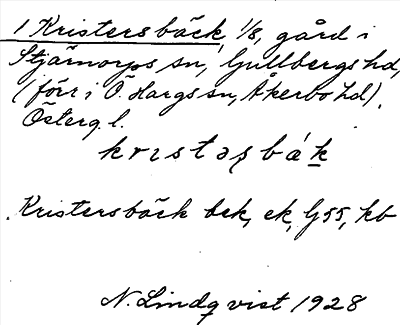 1 Kristersbäck, 1/8, gård i
Stjärnorps sn, Gullbergs hd,
(förr i Ö. Hargs sn, Åkerbo hd).
Österg. l.
krɪstəʂbák
Kristersbäck bek, ek, G55, kb
N. Lindqvist 1928